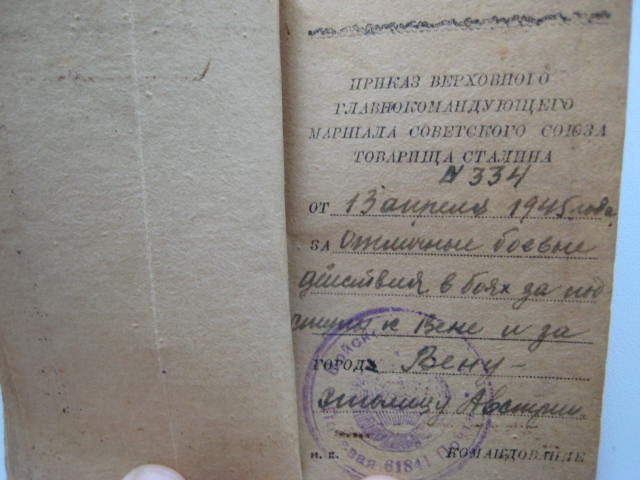 ПРИКАЗ ВЕРХОВНОГО
ГЛАВНОКОМАНДУЮЩЕГО
МАРШАЛА СОВЕТСКОГО СОЮЗА
ТОВАРИЩА СТАЛИНА
N 334
ОТ 13 апреля 1945 года
ЗА Отличные боевые
действия в боях за под-
ступы к Вене и за
ГОРОД Вену -
столицу Австрии.
п. п. КОМАНДОВАНИЕ
Полевая Почта 61841